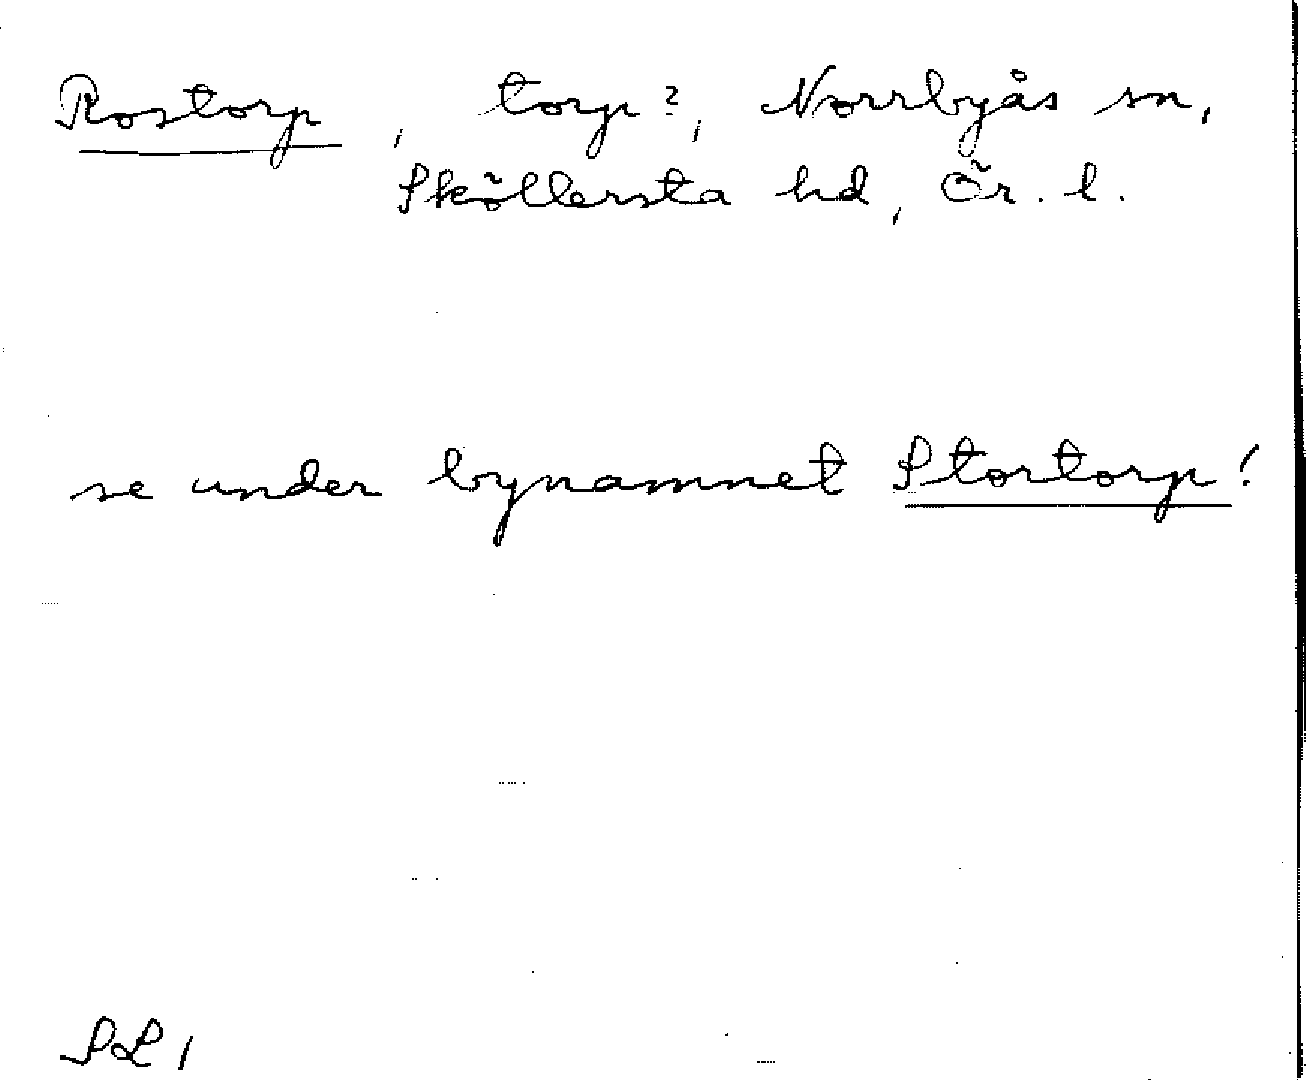 Rostorp, torp?, Norrbyås sn,
Sköllersta hd, Ör. l.
se under bynamnet Stortorp!
SL 1